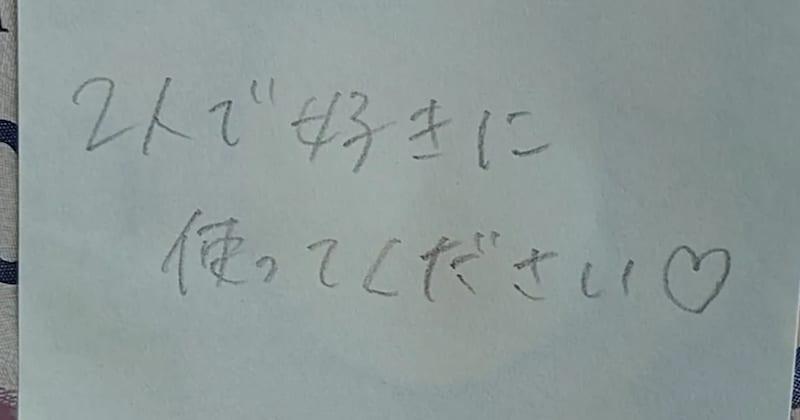 2人で好きに
使ってください♡